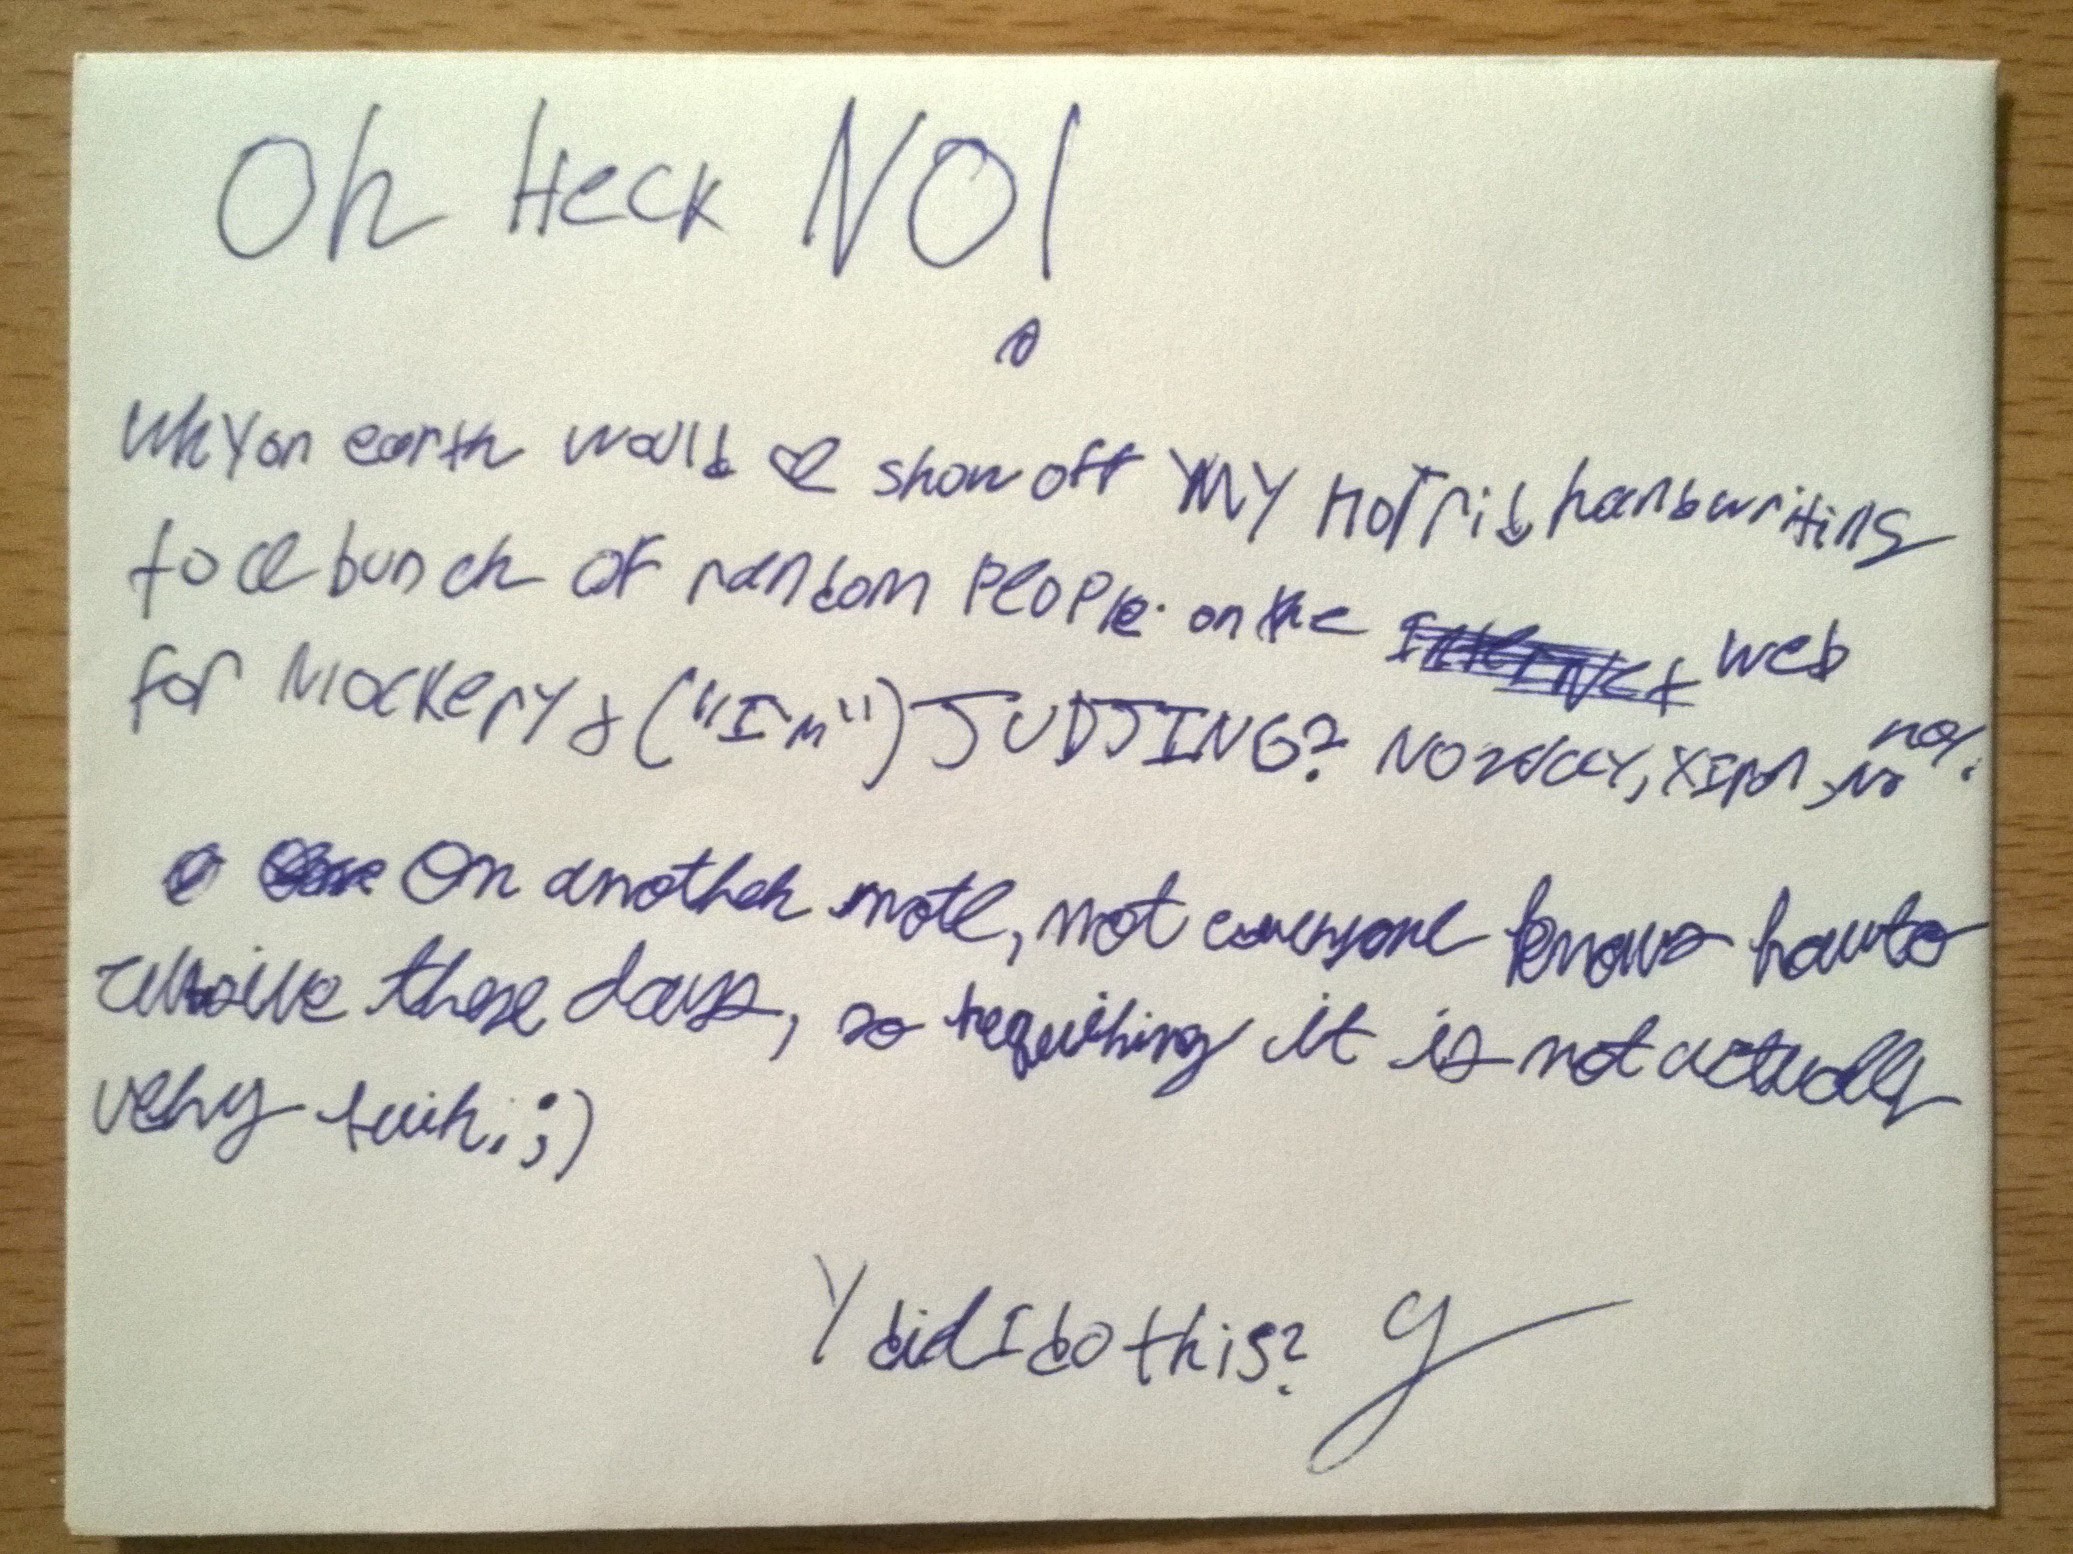 Oh Heck NO!
Why on earth would I show off MY HORrid handwriting
to a bunch of random People on the web
for Mockery & ("Im") JUDJING? No way, no
On another note, not everyone knows how to
cursive these days, so requiring it is not actually
very fair. ;)
Y did I do this? y